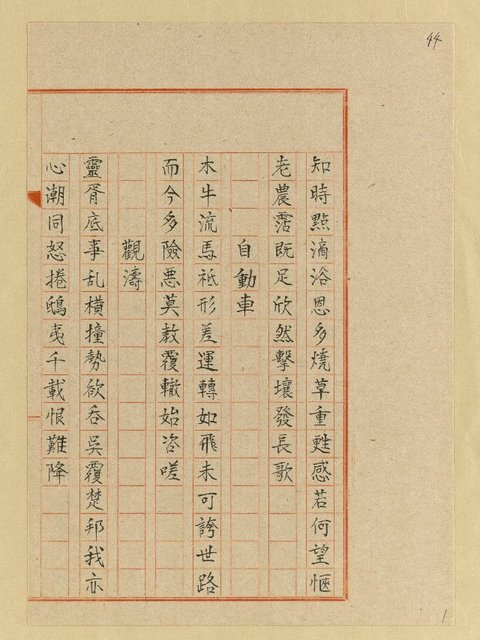 44
知時點滴浴恩多燒草重甦感若何望愜
老農霑既足欣然擊壤發長歌
自動車
木牛流馬祇形差運轉如飛未可誇世路
而今多險惡莫教覆轍始咨嗟
觀濤
靈胥底事乱橫撞勢欲吞吳覆楚邦我亦
心潮同怒捲鴟夷千載恨難降
1